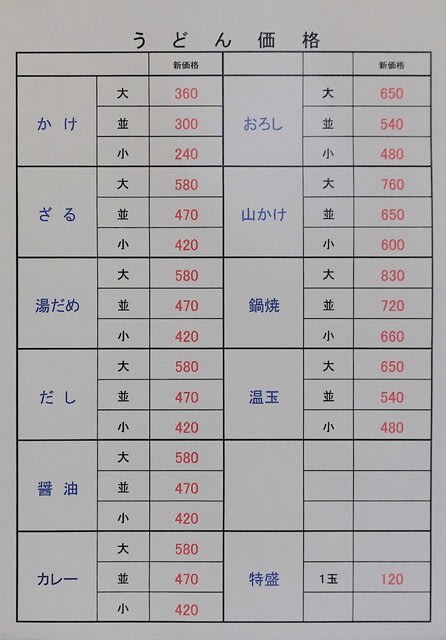 うどん価格
新価格 新価格
大 360 大 650
かけ 並 300 おろし 並 540
小 240 小 480
大 580 大 760
ざる 並 470 山かけ 並 650
小 420 小 600
大 580 大 830
湯だめ 並 470 鍋焼 並 720
小 420 小 660
大 580 大 650
だし 並 470 温玉 並 540
小 420 小 480
大 580
醤油 並 470
小 420
大 580
カレー 並 470 特盛 1玉 120
小 420